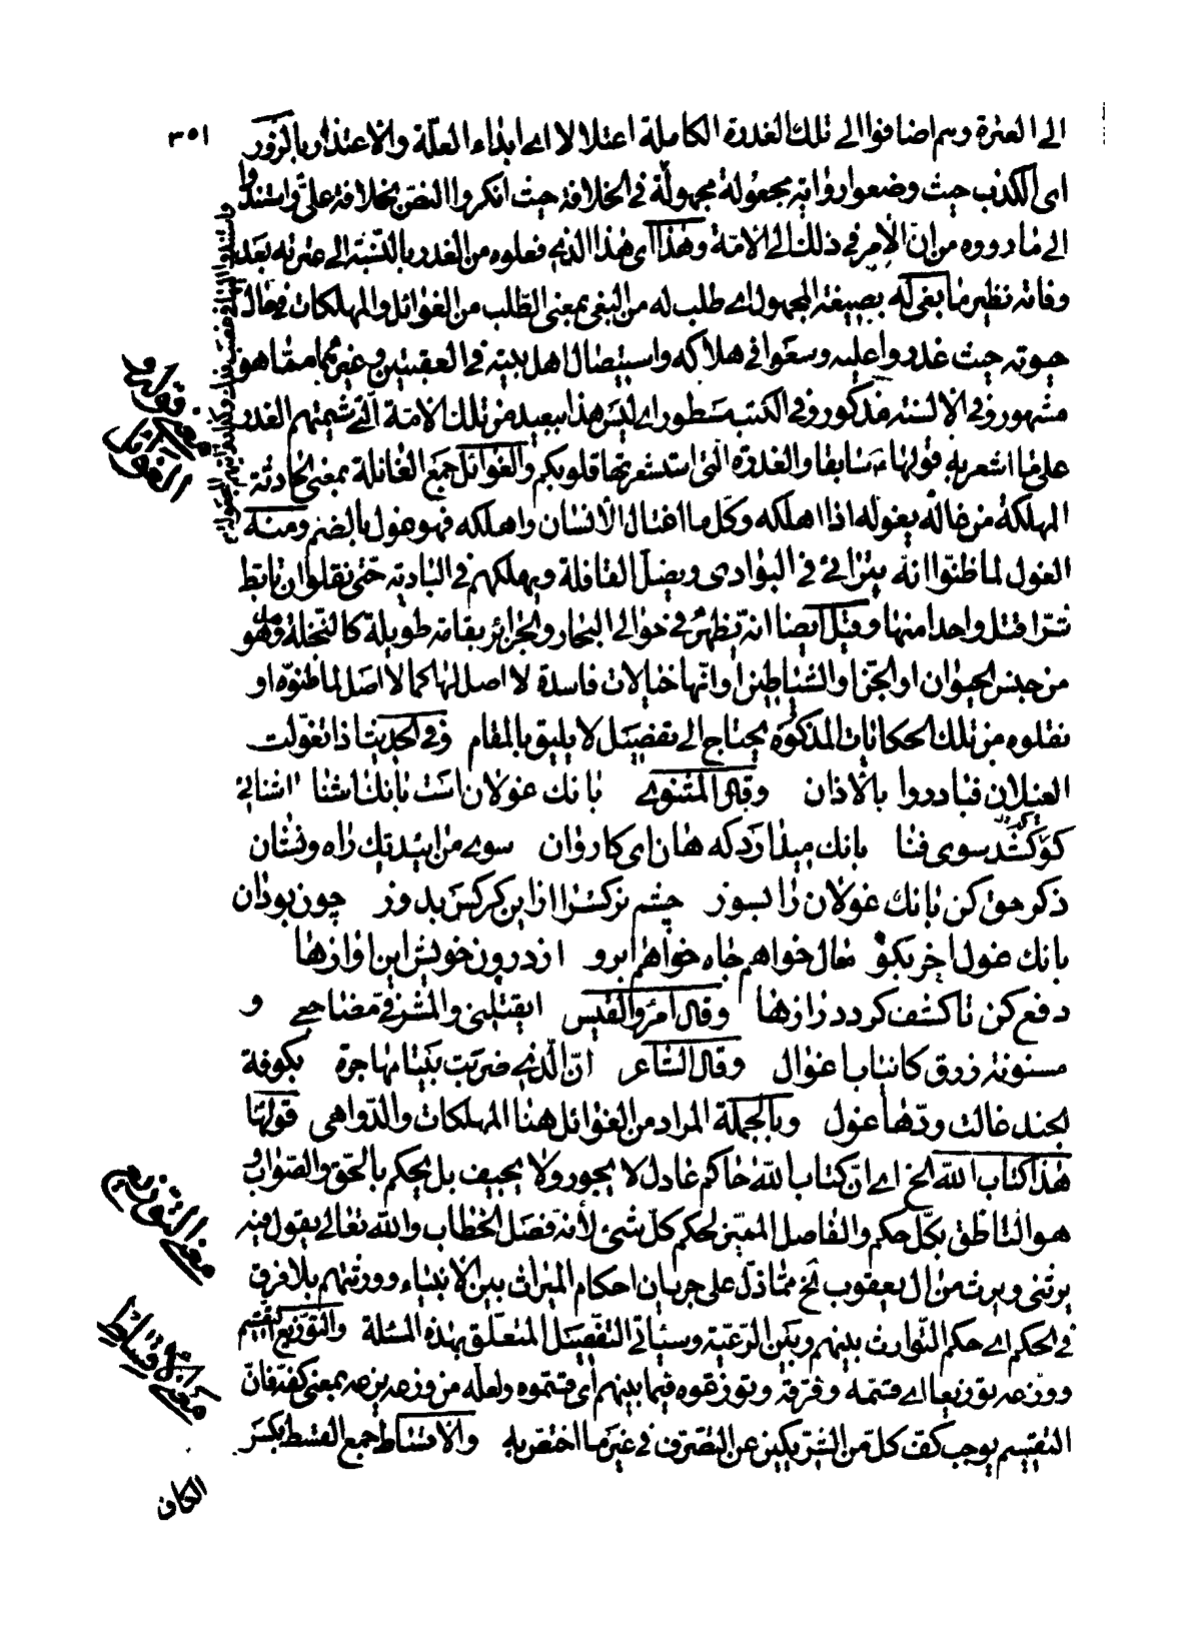 ٣٥١
الى العترة وهم اضافوا الى تلك الغدرة الكاملة اعتلالا اى ابداء العلّة والاعتذار بالزور
اى الكذب حيث وضعوا رواية مجعولة مجهولة فى الخلافة حيث انكروا النصّ بخلافة علىّ واستندوا
الى ما رووه من انّ الامر فى ذلك الى الامّة وهذا اى هذا الذى فعلوه من الغدر بالنسبة الى عترته بعد
وفاته نظير ما بغى له بصيغة المجهول اى طلب له من البغى بمعنى الطلب من الغوائل والمهلكات فى حال
حيوته حيث غدروا عليه وسعوا فى هلاكه واستيصال اهل بيته فى العقبتين وغيرهما ممّا هو
مشهور فى الالسنة مذكور فى الكتب مسطور اى ليس هذا ببعيد من تلك الامّة الّتى شيمتهم الغدر
على ما اشعر به قولها سابقا والغدرة الّتى استشعرتها قلوبكم والغوائل جمع الغائلة بمعنى الحادثة
المهلكة من غاله يغوله اذا اهلكه وكلّ ما اغتال الانسان واهلكه فهو غول بالضم ومنه
الغول لما ظنّوا انّه يتراءى فى البوادى ويضلّ القافلة ويهلكهم فى البادية حتى نقلوا ان تابّط
شرّا قتل واحدا منها وقيل ايضا انّه يظهر فى حوالى البحار والجزائر بقامة طويلة كالنخلة وهو
من جنس الحيوان او الجنّ او الشياطين او انّها خيالات فاسدة لا اصل لها كما لا اصل لما ظنوه او
نقلوه من تلك الحكايات المذكورة يحتاج الى تفصيل لا يليق بالمقام وفى الحديث اذا تغوّلت
الغيلان فبادروا بالاذان وقال المثنوى بانك غولان است بانك اشنا اشنائى
كو كشد سوى فنا بانك ميدارد كه هان اى كاروان سوى من ائيد نك راه ونشان
ذكر حق كن بانك غولان را بسوز چشم نركس را از اين كركس بدوز چون بود ان
بانك غول اخر بكو مال خواهم جاه خواهم ابرو از درون خويش اين اوازها
دفع كن تا كشف كردد رازها وقال امرؤ القيس ايقتلنى والمشرفىّ مضاجعى و
مسنونة زرق كانياب اغوال وقال الشاعر انّ الّذى ضربت بيتا مهاجرة بكوفة
الجند غالت ودّها غول وبالجملة المراد من الغوائل هنا المهلكات والدّواهى قولها
هذا كتاب اللّه الخ اى انّ كتاب اللّه حاكم عادل لا يجور ولا يحيف بل يحكم بالحق والصّواب و
هو الناطق بكلّ حكم والفاصل المبيّن لحكم كلّ شئ لأنّه فصل الخطاب واللّه تعالى يقول فيه
يرثنى ويرث من ال يعقوب الخ ممّا دلّ على جريان احكام الميراث بين الانبياء وورثتهم بلا فرق
فى الحكم اى حكم التوارث بينهم وبين الرعيّة وسياتى التفصيل المتعلّق بهذه المسئلة والتوزيع التقسيم
ووزّعه توزيعا اى قسّمه وفرّقه وتوزّعوه فيما بينهم اى قسّموه ولعلّه من وزعه يزعه بمعنى كفّه فانّ
التقسيم يوجب كفّ كل من الشريكين عن التصرّف فى غير ما اختصّ به والاقساط جمع القسط بكسر
معنى قوله و الغوائل
معنى التوزيع
معنى الاقساط
القاف